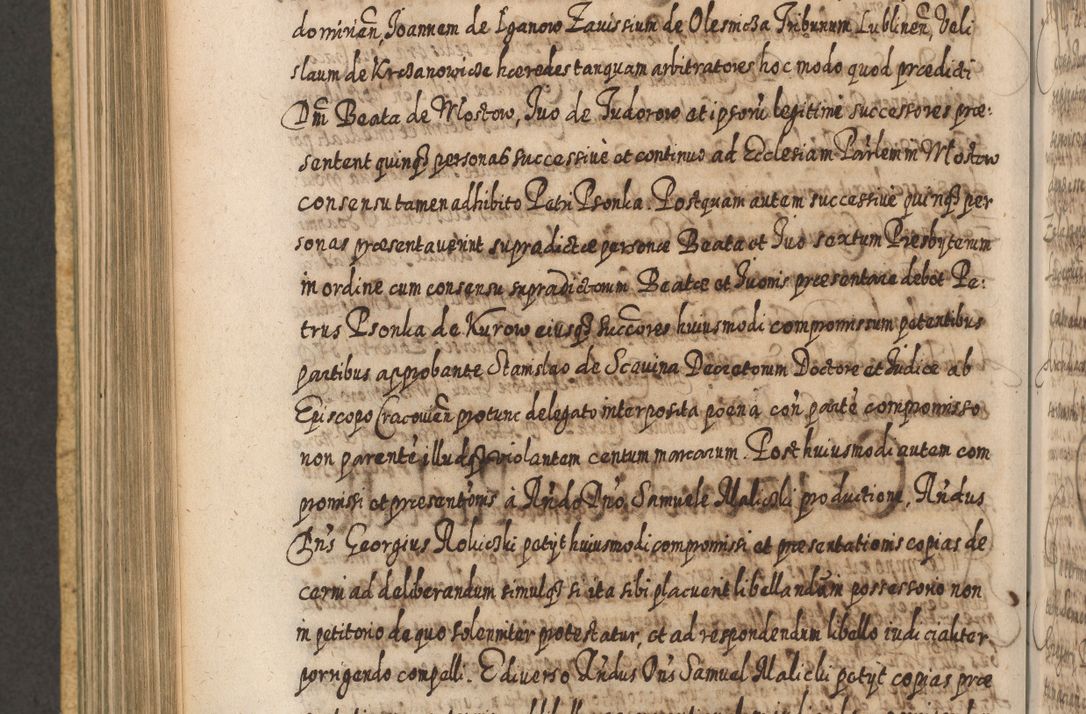 domirien, Joannem de Iganowo Zavissium de Olesnicza Tribunum Lublinen, Veli
slaum de Krczanowicze hæredes tanquam arbitratores hoc modo quod prædicti
Dni Beata de Mostow, Ivo de Tudorowo et ipsorũ legitimi successores præ:
sentent quinq3 personas successivè et continuo ad Ecclesiam Parlem in Mostow
consensu tamen adhibito Petri Psonka. Postquam autem successivè quinq3 per
sonas præsentaverint supradictæ personæ Beata et Ivo sextum Presbyterum
in ordine cum consensu supradictorum Beatæ et Ivonis præsentare debet Pe:
trus Psonka de Kurow eiusq3 succores huiusmodi compromissum petentibus
partibus approbante Stanislao de Scavina Decretorum Doctore et Judice ab
Episcopo Cracovien protunc delegato interposita pœna con parte compromisso
non parente illudq3 violantem centum marcarum. Post huiusmodi autem com
promissi et præsentonis à Rndo Dno Samuele Malicki productione, Rndus
Dns Georgius Rokiczki petyt huiusmodi compromissi et præsentationis copias de
cerni ad deliberandum simulq3 si ita sibi placuerit libellandum in possessorio non
in petitorio de quo solenniter protestatur, et ad respondendum libello iudicialiter
porrigendo compelli. E diverso Rndus Dns Samuel Malicki petyt copias præ